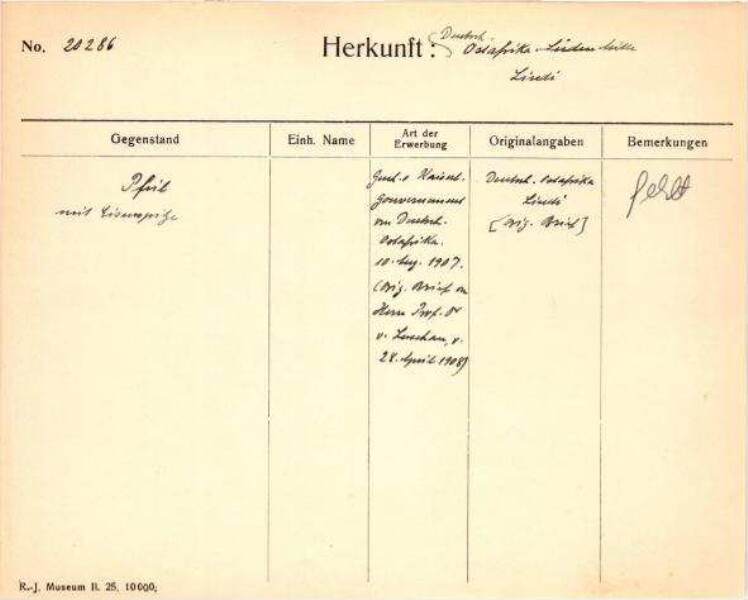 No. 20286
Herkunft: Deutsch.
Ostafrika
Lindi
Gegenstand
Einh. Name
Art der
Erwerbung
Originalangaben
Bemerkungen
Pfeil
mit Eisenspitze
Gesch. v. Kaiserl.
Gouvernement
von Deutsch-
Ostafrika.
10. Aug. 1907.
(Orig. Brief von
Herrn Prof. Dr
v. Luschan, v.
28. April 1908)
Deutsch-Ostafrika
Lindi
[Orig. Brief]
fehlt
R.-J. Museum B. 25. 10000;